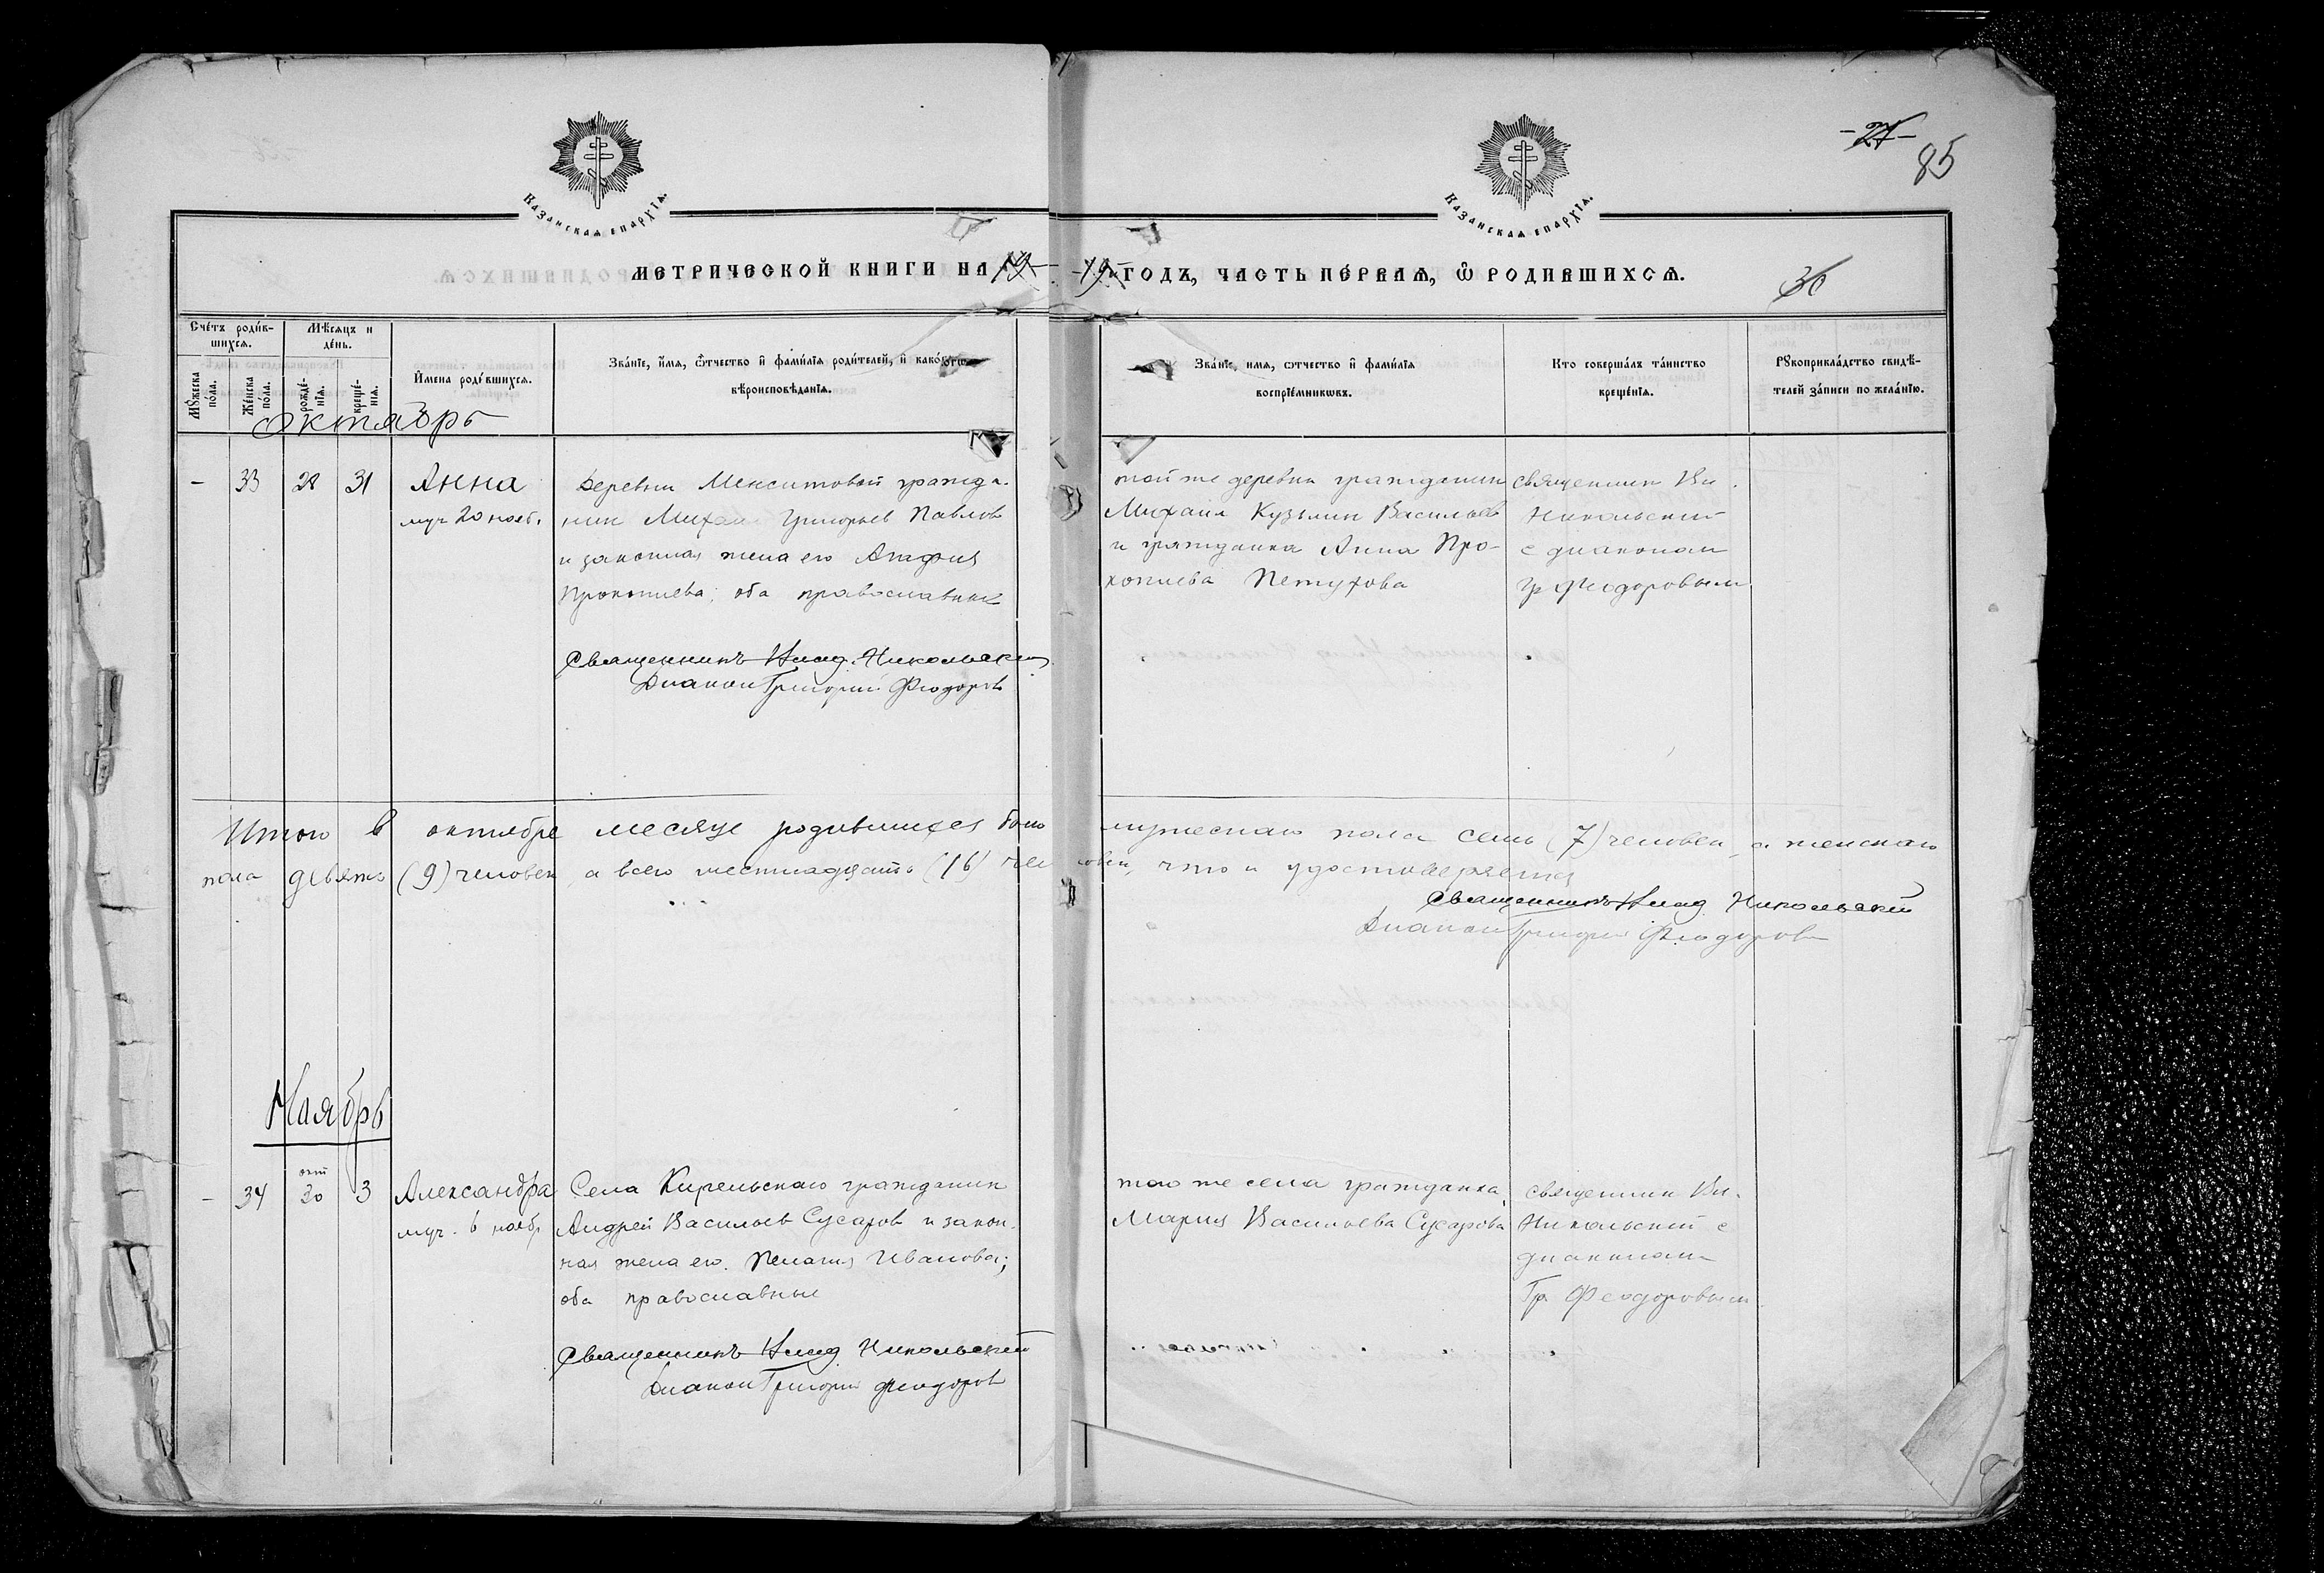 -27-
85
Казанская епархїя.
Казанская епархїя.
метрической книги на 19
19 годъ, часть первая, ѡ родившихся.
36
Счетъ родив-
шихся.
Мѣсяцъ и
день.
Мꙋжеска
пола.
Женска
пола.
рожде-
нїя.
креще-
нїя.
Имена родившихся.
Званїе, имя, ѻтчество и фамилїя родителей, и какогѡ
вѣроисповѣданїя.
Званїе, имя, ѻтчество и фамилїя
воспрїемникѡвъ.
Кто совершалъ таинство
крещенїя.
Рꙋкоприкладство свидѣ-
телей записи по желанїю.
Октябрь
- 33 28 31 Анна
муч 20 нояб.
Деревни Менситовой гражда-
нин Михаил Григорьев Павлов
и законная жена его Агафия
Прокопиева; оба православные
Священникъ Клид. Никольский
Диакон Григорий Феодоров
той же деревни гражданин
Михаил Кузьмин Васильев
и гражданка Анна Про-
копиева Петухова
священник Кл.
Никольский
с диаконом
Гр Феодоровым
Итого в октябре месяце родившихся было мужескаго пола семь (7) человек, а женскаго
пола девять (9) человек, а всего шестнадцать (16) человек, что и удостоверяется
Священникъ Клид. Никольский
Диакон Григорий Феодоров
Ноябрь
- 34 окт 30 3 Александра
муч. 6 ноябр
Села Кирельскаго гражданин
Андрей Васильев Сусаров и закон-
ная жена его Пелагия Иванова;
оба православные
Священникъ Клид. Никольский
Диакон Григорий Феодоров
того же села гражданка
Мария Васильева Сусарова
священник Кл.
Никольский с
диаконом
Гр. Феодоровым